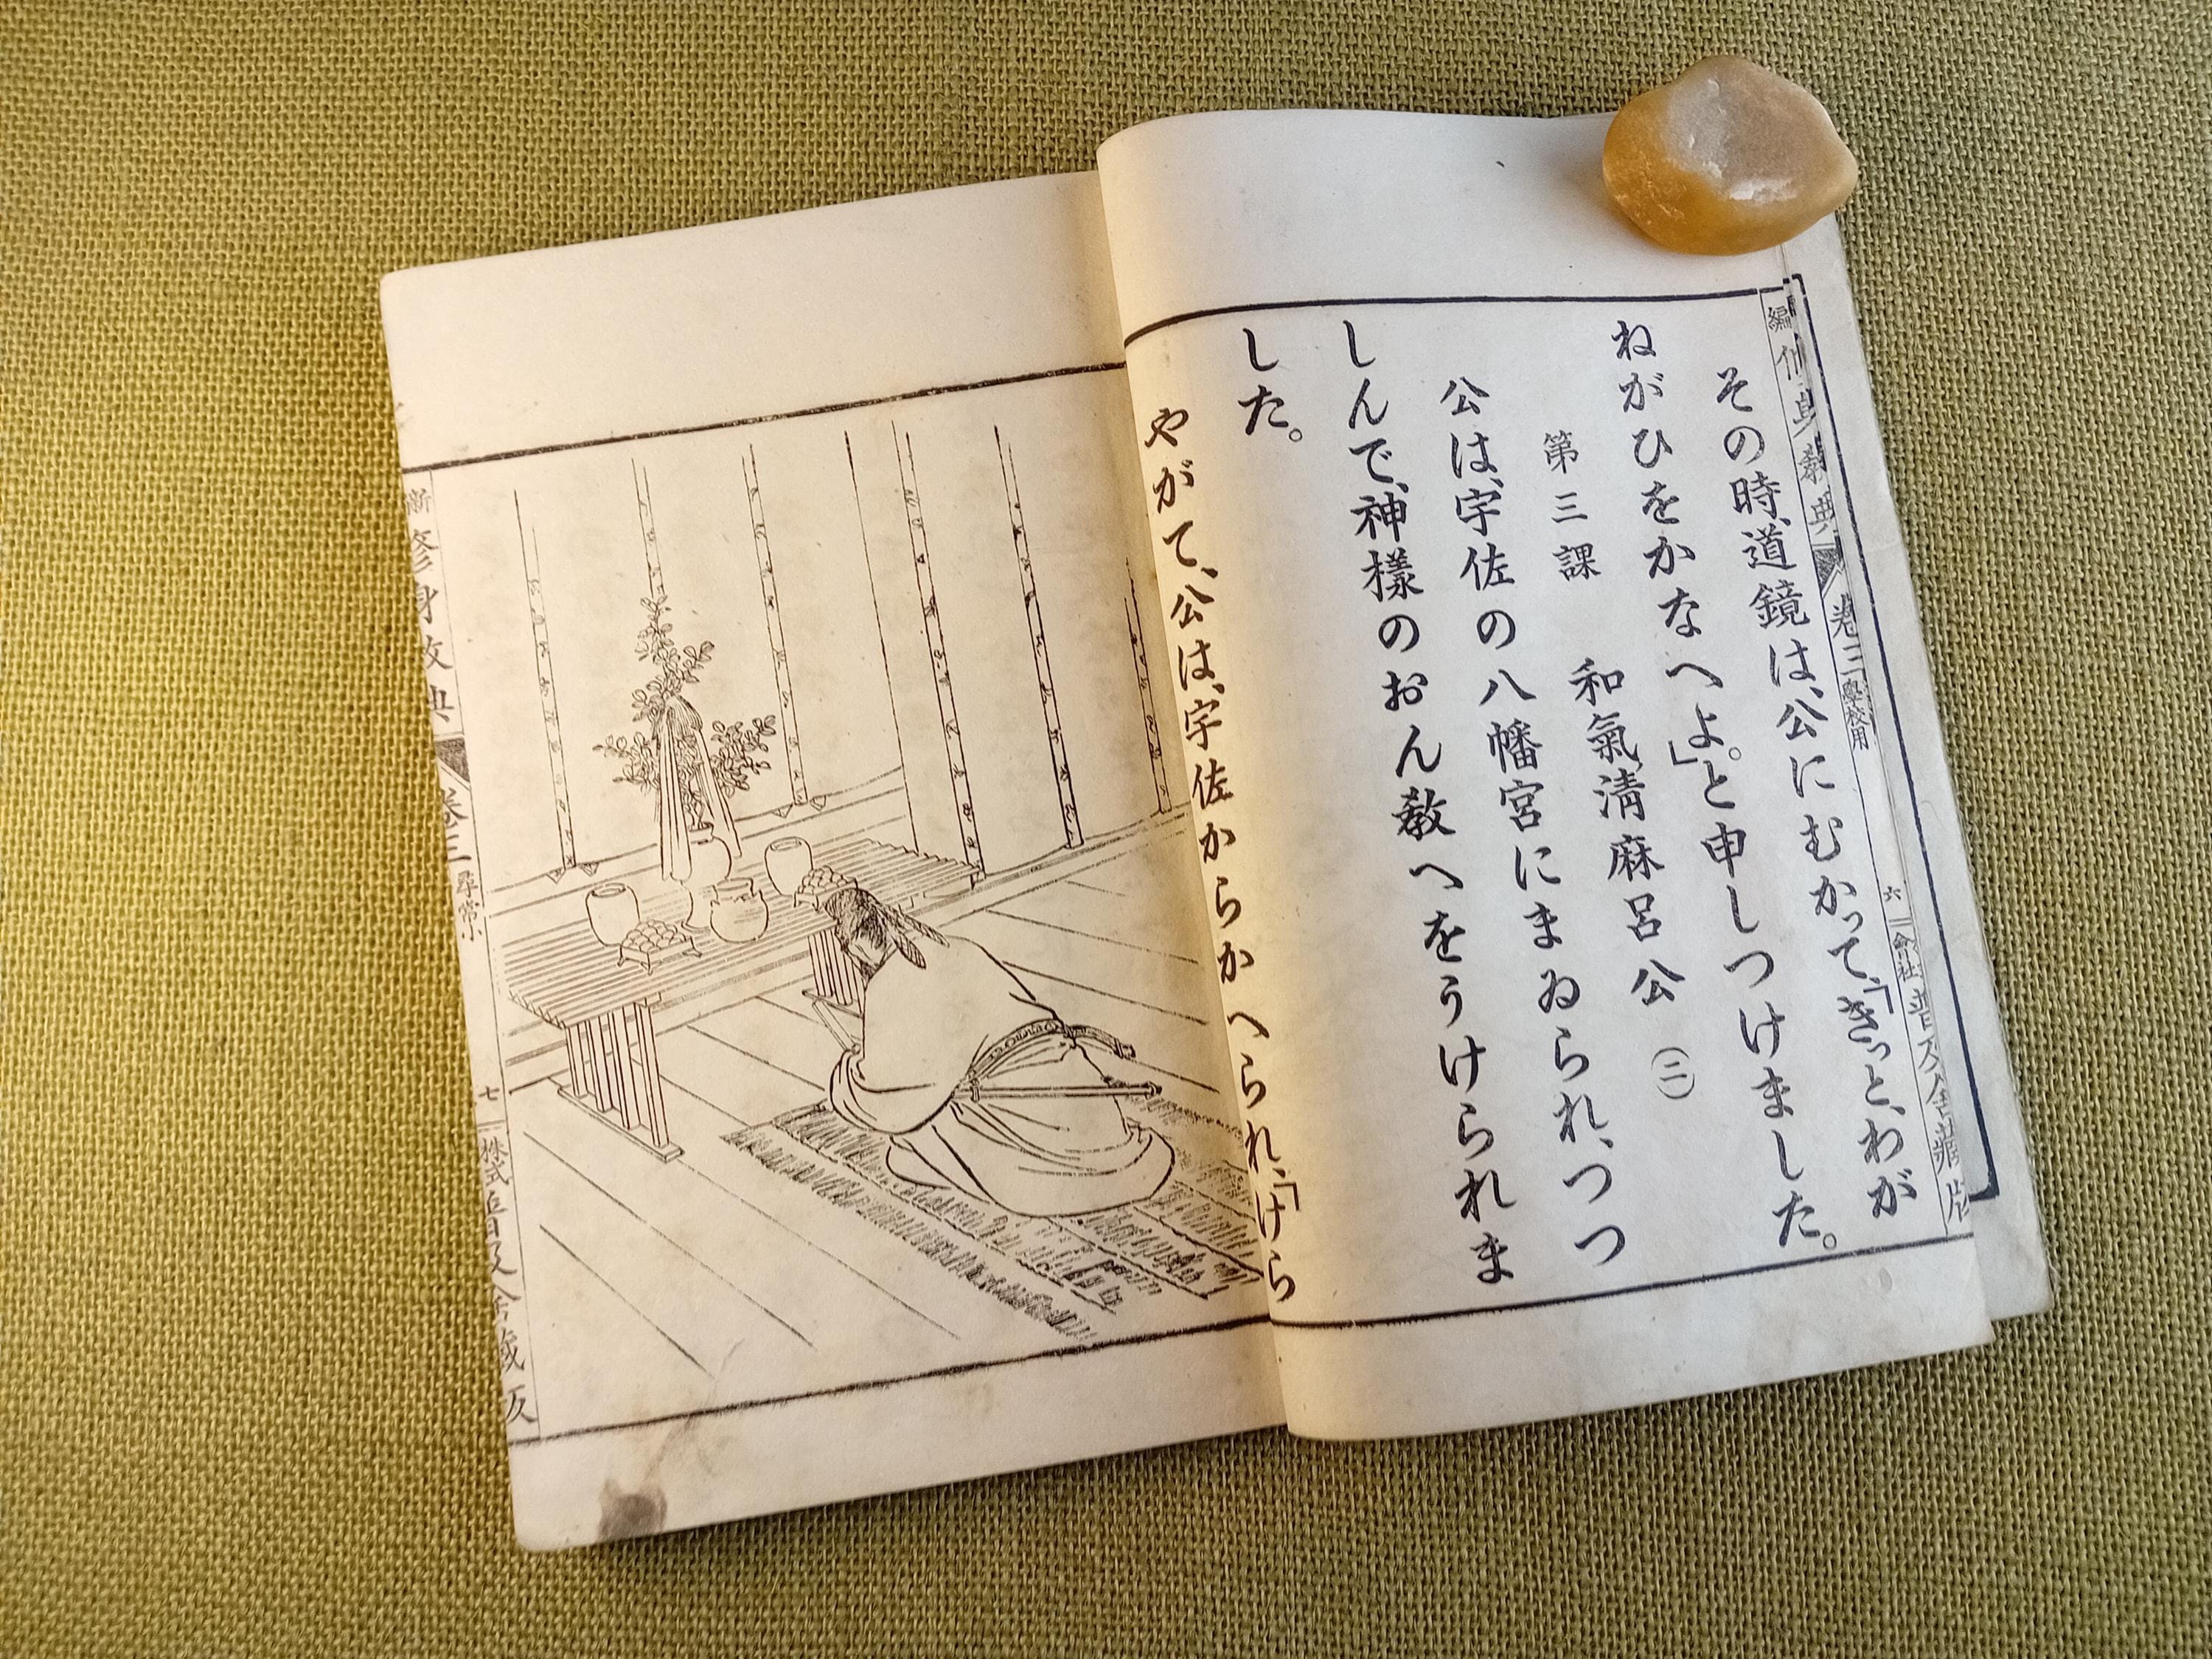 編修身教典 卷三 學校用 六 會社普及舍藏版
その時、道鏡は、公にむかって、「きっと、わが
ねがひをかなへよ。」と申しつけました。
第三課 和氣清麻呂公 (二)
公は、宇佐の八幡宮にまゐられ、つつ
しんで、神様のおん教へをうけられま
した。
やがて、公は、宇佐からかへられ、「けら
新 修身教典 卷三 尋常小 七 株式 普及舍藏版